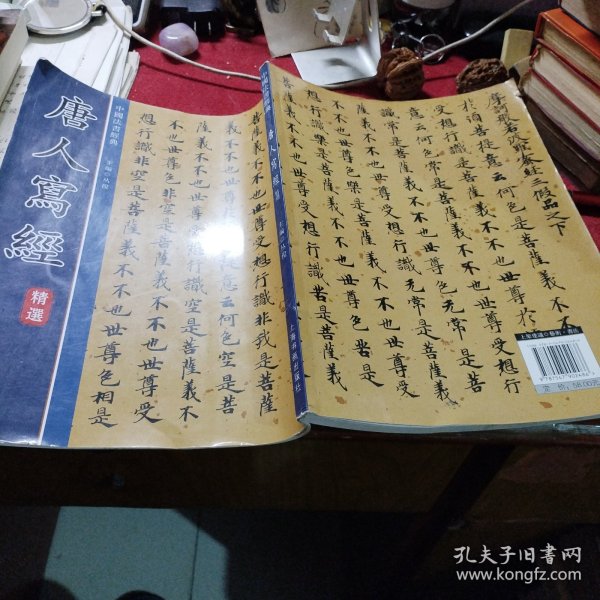 唐人寫經
精選
中國法書經典
唐人寫經
上海書畫出版社
摩訶般若波羅蜜經三假品之下
於須菩提意云何色是菩薩義不
受想行識是菩薩義不不也世尊於
意云何色常是菩薩義不不也世尊受想行
識常是菩薩義不不也世尊色无常是菩薩
義不不也世尊受想行識无常是菩薩義不
想行識樂是菩薩義不不也世尊色苦是
菩薩義不不也世尊受想行識苦是菩薩義
菩薩義不不也世尊受想行識非我是菩薩
義不不也世尊於意云何色空是菩
薩義不不也世尊受想行識空是菩薩義不
不不也世尊色非空是菩薩義不不也世尊受
想行識非空是菩薩義不不也世尊色相是
上架建議○藝術・書法
定价：58.00元
孔夫子旧书网
www.kongfz.com